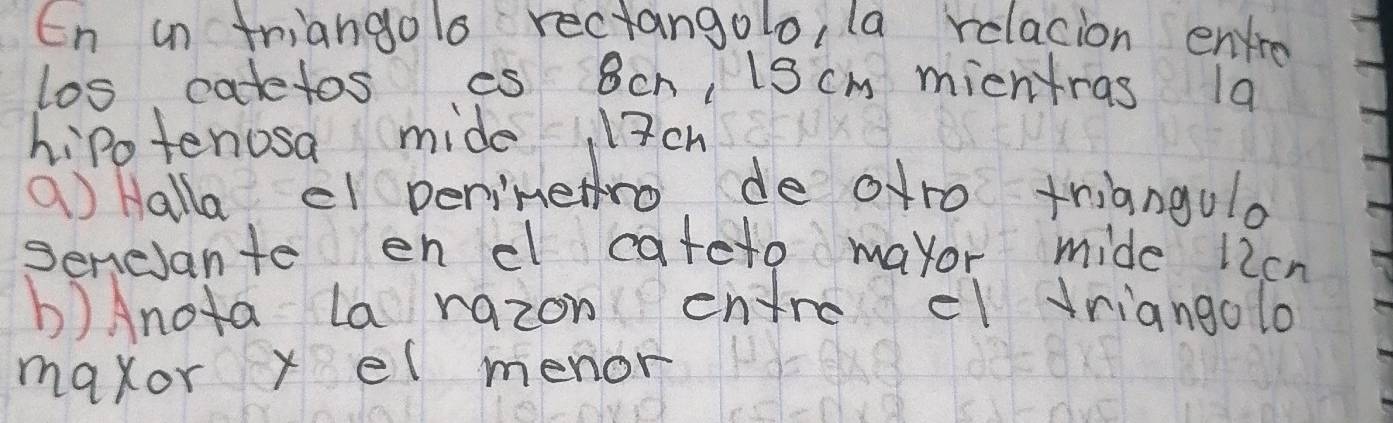 En un triangolo rectangolo, la relacion entre
los catetos es 8cm, 15cm mientras la
hipotenosa mide 17cm
a) Halla el perimetro de otro triangulo
semejante en el cateto mayor mide 12cm
b) Anota la razon entre el triangolo
mayor y el menor